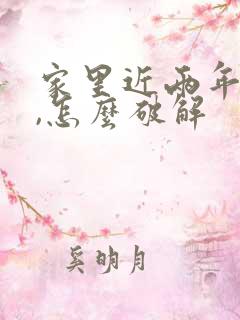 家里近两年
,怎麼破解
奚明月